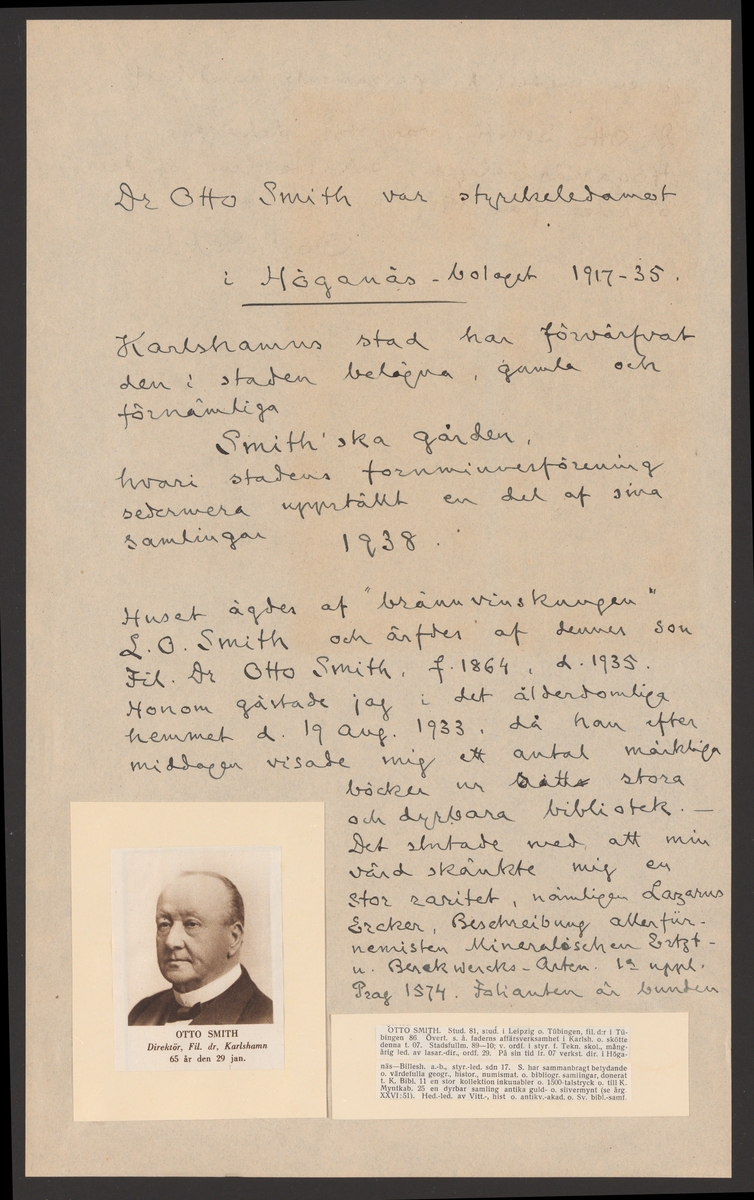 Dr Otto Smith var styrelseledamot
i Höganäs-bolaget 1917-35.
Karlshamns stad har förvärfvat
den i staden belägna, gamla och
förnämliga
Smith'ska gården,
hvari stadens fornminnesförening
sedermera uppställt en del af sina
samlingar 1938.
Huset ägdes af "brännvinskungen"
L.O. Smith och ärfdes af dennes son
Fil. Dr Otto Smith, f. 1864, d. 1935.
Honom gästade jag i det ålderdomliga
hemmet d. 19 aug. 1933, då han efter
middagen visade mig ett antal märkliga
böcker ur stora
och dyrbara bibliotek. —
Det slutade med, att min
värd skänkte mig en
stor raritet, nämligen Lazarus
Ercker, Beschreibung allerfür-
nemisten Mineralischen Ertzt-
u. Berckwercks-Arten. 1a uppl.
Prag 1574. Folianten är bunden
OTTO SMITH
Direktör, Fil. dr, Karlshamn
65 år den 29 jan.
OTTO SMITH. Stud. 81, stud. i Leipzig o. Tübingen, fil. d:r i Tü-
bingen 86. Övert. s. å. faderns affärsverksamhet i Karlsh. o. skötte
denna t. 07. Stadsfullm. 89—10; v. ordf. i styr. f. Tekn. skol., mång-
årig led. av lasar.-dir., ordf. 29. På sin tid fr. 07 verkst. dir. i Höga-
näs—Billesh. a.-b., styr.-led. sdn 17. S. har sammanbragt betydande
o. värdefulla geogr., histor., numismat. o. bibliogr. samlingar, donerat
t. K. Bibl. 11 en stor kollektion inkunabler o. 1500-talstryck o. till K.
Myntkab. 25 en dyrbar samling antika guld- o. silvermynt (se årg.
XXVI:51). Hed.-led. av Vitt.-, hist. o. antikv.-akad. o. Sv. bibl.-samf.